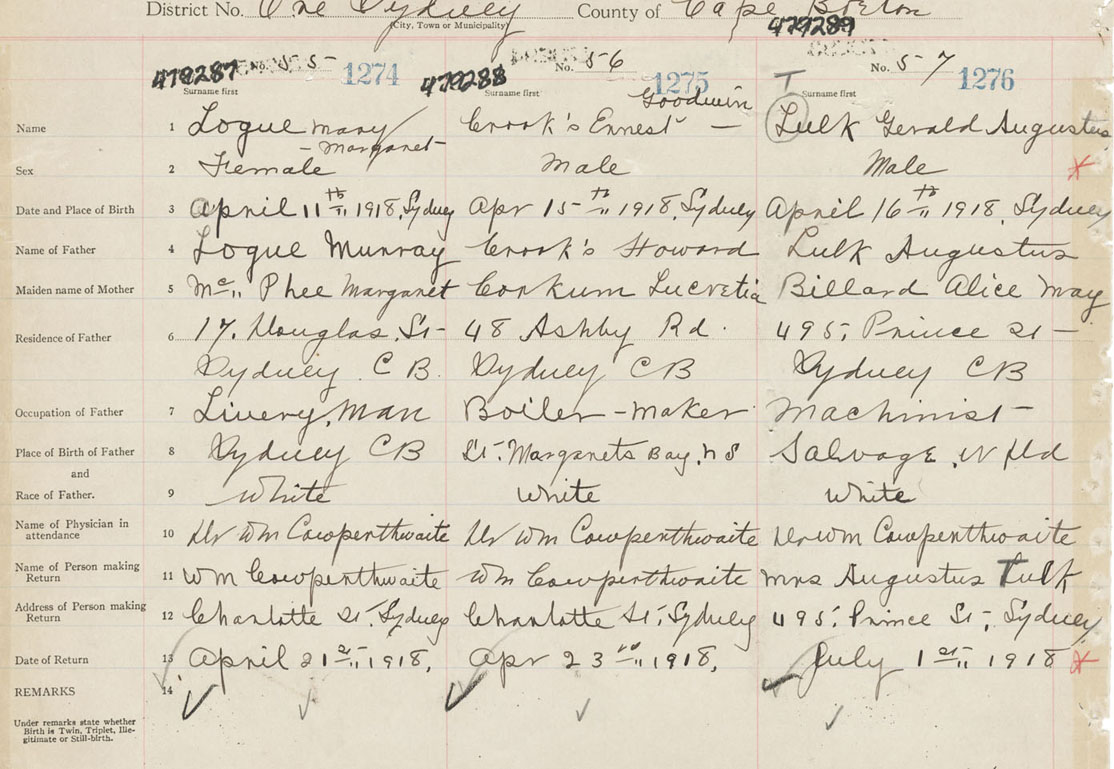 District No. One Sydney County of Cape Breton
(City, Town or Municipality)
479287 No. 55 1274 479288 No. 56 1275 479289 No. 57 1276
Surname first Surname first Goodwin T Surname first
Name 1 Logue Mary Crook's Ernest — Lulk Gerald Augustus
- Margaret
Sex 2 Female Male Male
Date and Place of Birth 3 April 11th 1918, Sydney Apr 15th 1918, Sydney April 16th 1918, Sydney
Name of Father 4 Logue Murray Crook's Howard Lulk Augustus
Maiden name of Mother 5 Mc Phee Margaret Corkum Lucretia Billard Alice May
Residence of Father 6 17, Douglas, St- 48 Ashby Rd. 495, Prince St-
Sydney C B. Sydney CB Sydney CB
Occupation of Father 7 Livery, Man Boiler-maker Machinist-
Place of Birth of Father 8 Sydney CB St. Margarets Bay, N S Salvage, Nfld
and
Race of Father. 9 White White White
Name of Physician in attendance 10 Dr Wm Cowperthwaite Dr Wm Cowperthwaite Dr Wm Cowperthwaite
Name of Person making Return 11 Wm Cowperthwaite Wm Cowperthwaite Mrs Augustus Tulk
Address of Person making Return 12 Charlotte St, Sydney Charlotte St, Sydney 495, Prince St, Sydney
Date of Return 13 April 21st 1918, Apr 23rd 1918, July 1st 1918
REMARKS 14
Under remarks state whether
Birth is Twin, Triplet, Ille-
gitimate or Still-birth.